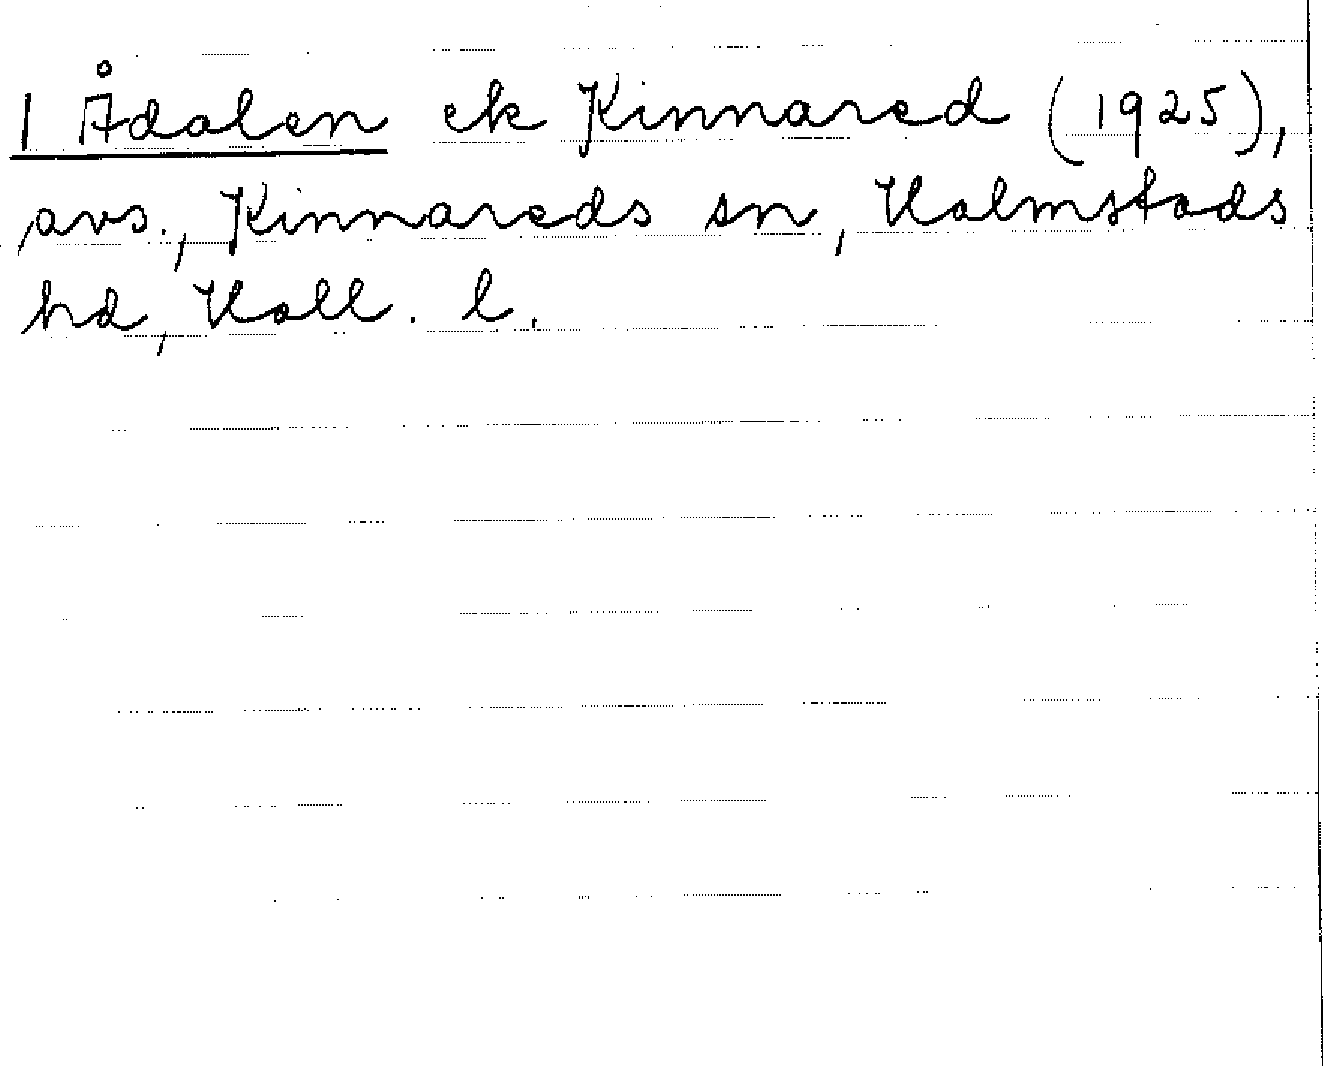 1 Ådalen ek Kinnared (1925),
avs., Kinnareds sn, Halmstads
hd, Hall. l.